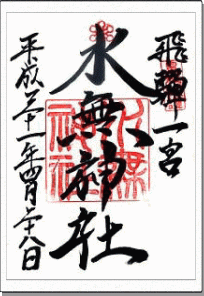 飛騨一宮
水無神社
平成二十一年四月二十八日